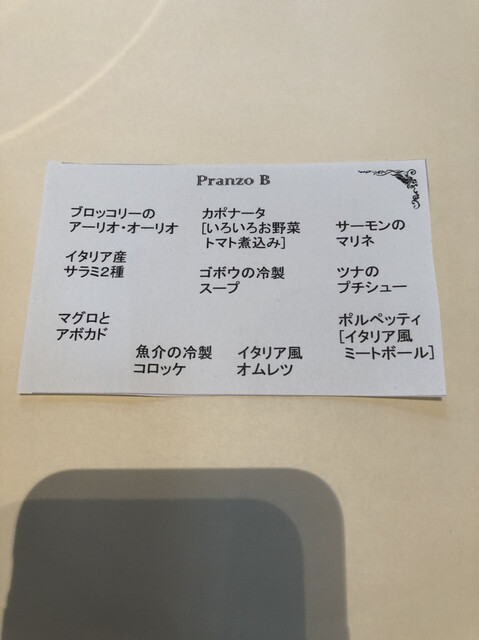 Pranzo B
ブロッコリーの
アーリオ・オーリオ
カポナータ
[いろいろお野菜
トマト煮込み]
サーモンの
マリネ
イタリア産
サラミ2種
ゴボウの冷製
スープ
ツナの
プチシュー
マグロと
アボカド
魚介の冷製
コロッケ
イタリア風
オムレツ
ポルペッティ
[イタリア風
ミートボール]